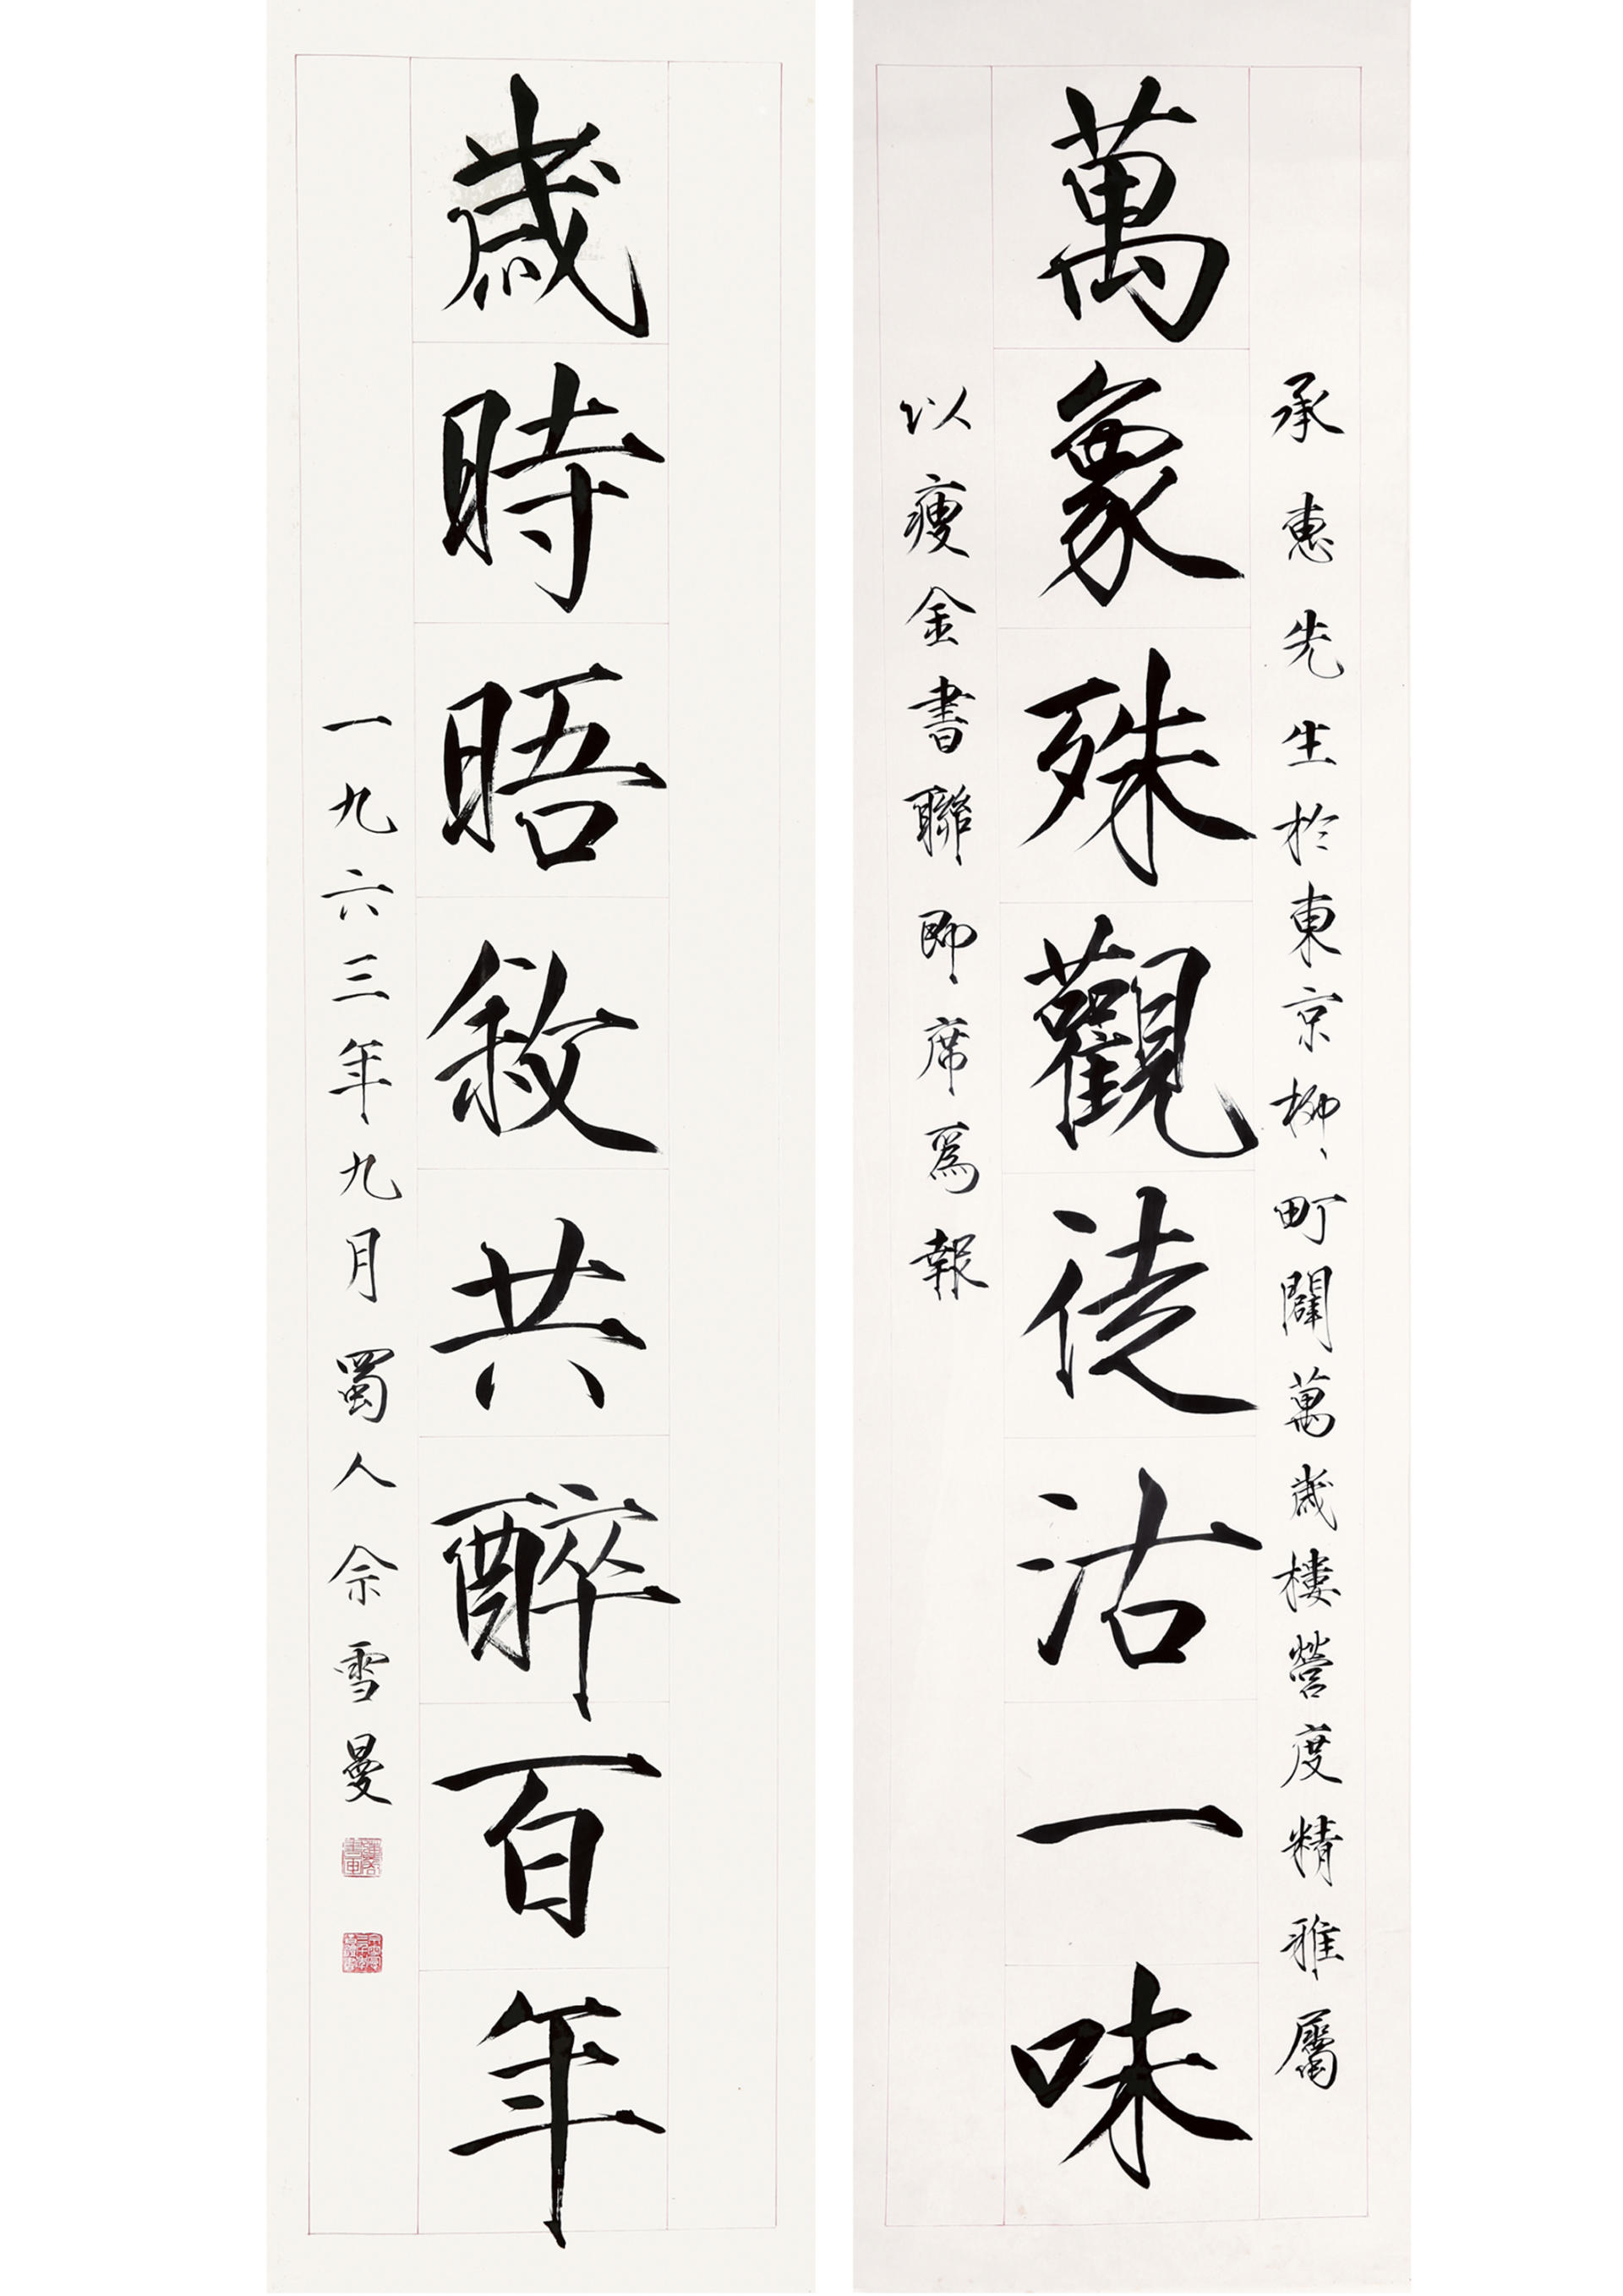 承惠先生於東京柳町闢萬歲樓營度精雅屬
萬象殊觀徒沽一味
以瘦金書聯即席為報
歲時晤敘共醉百年
一九六三年九月蜀人佘雪曼